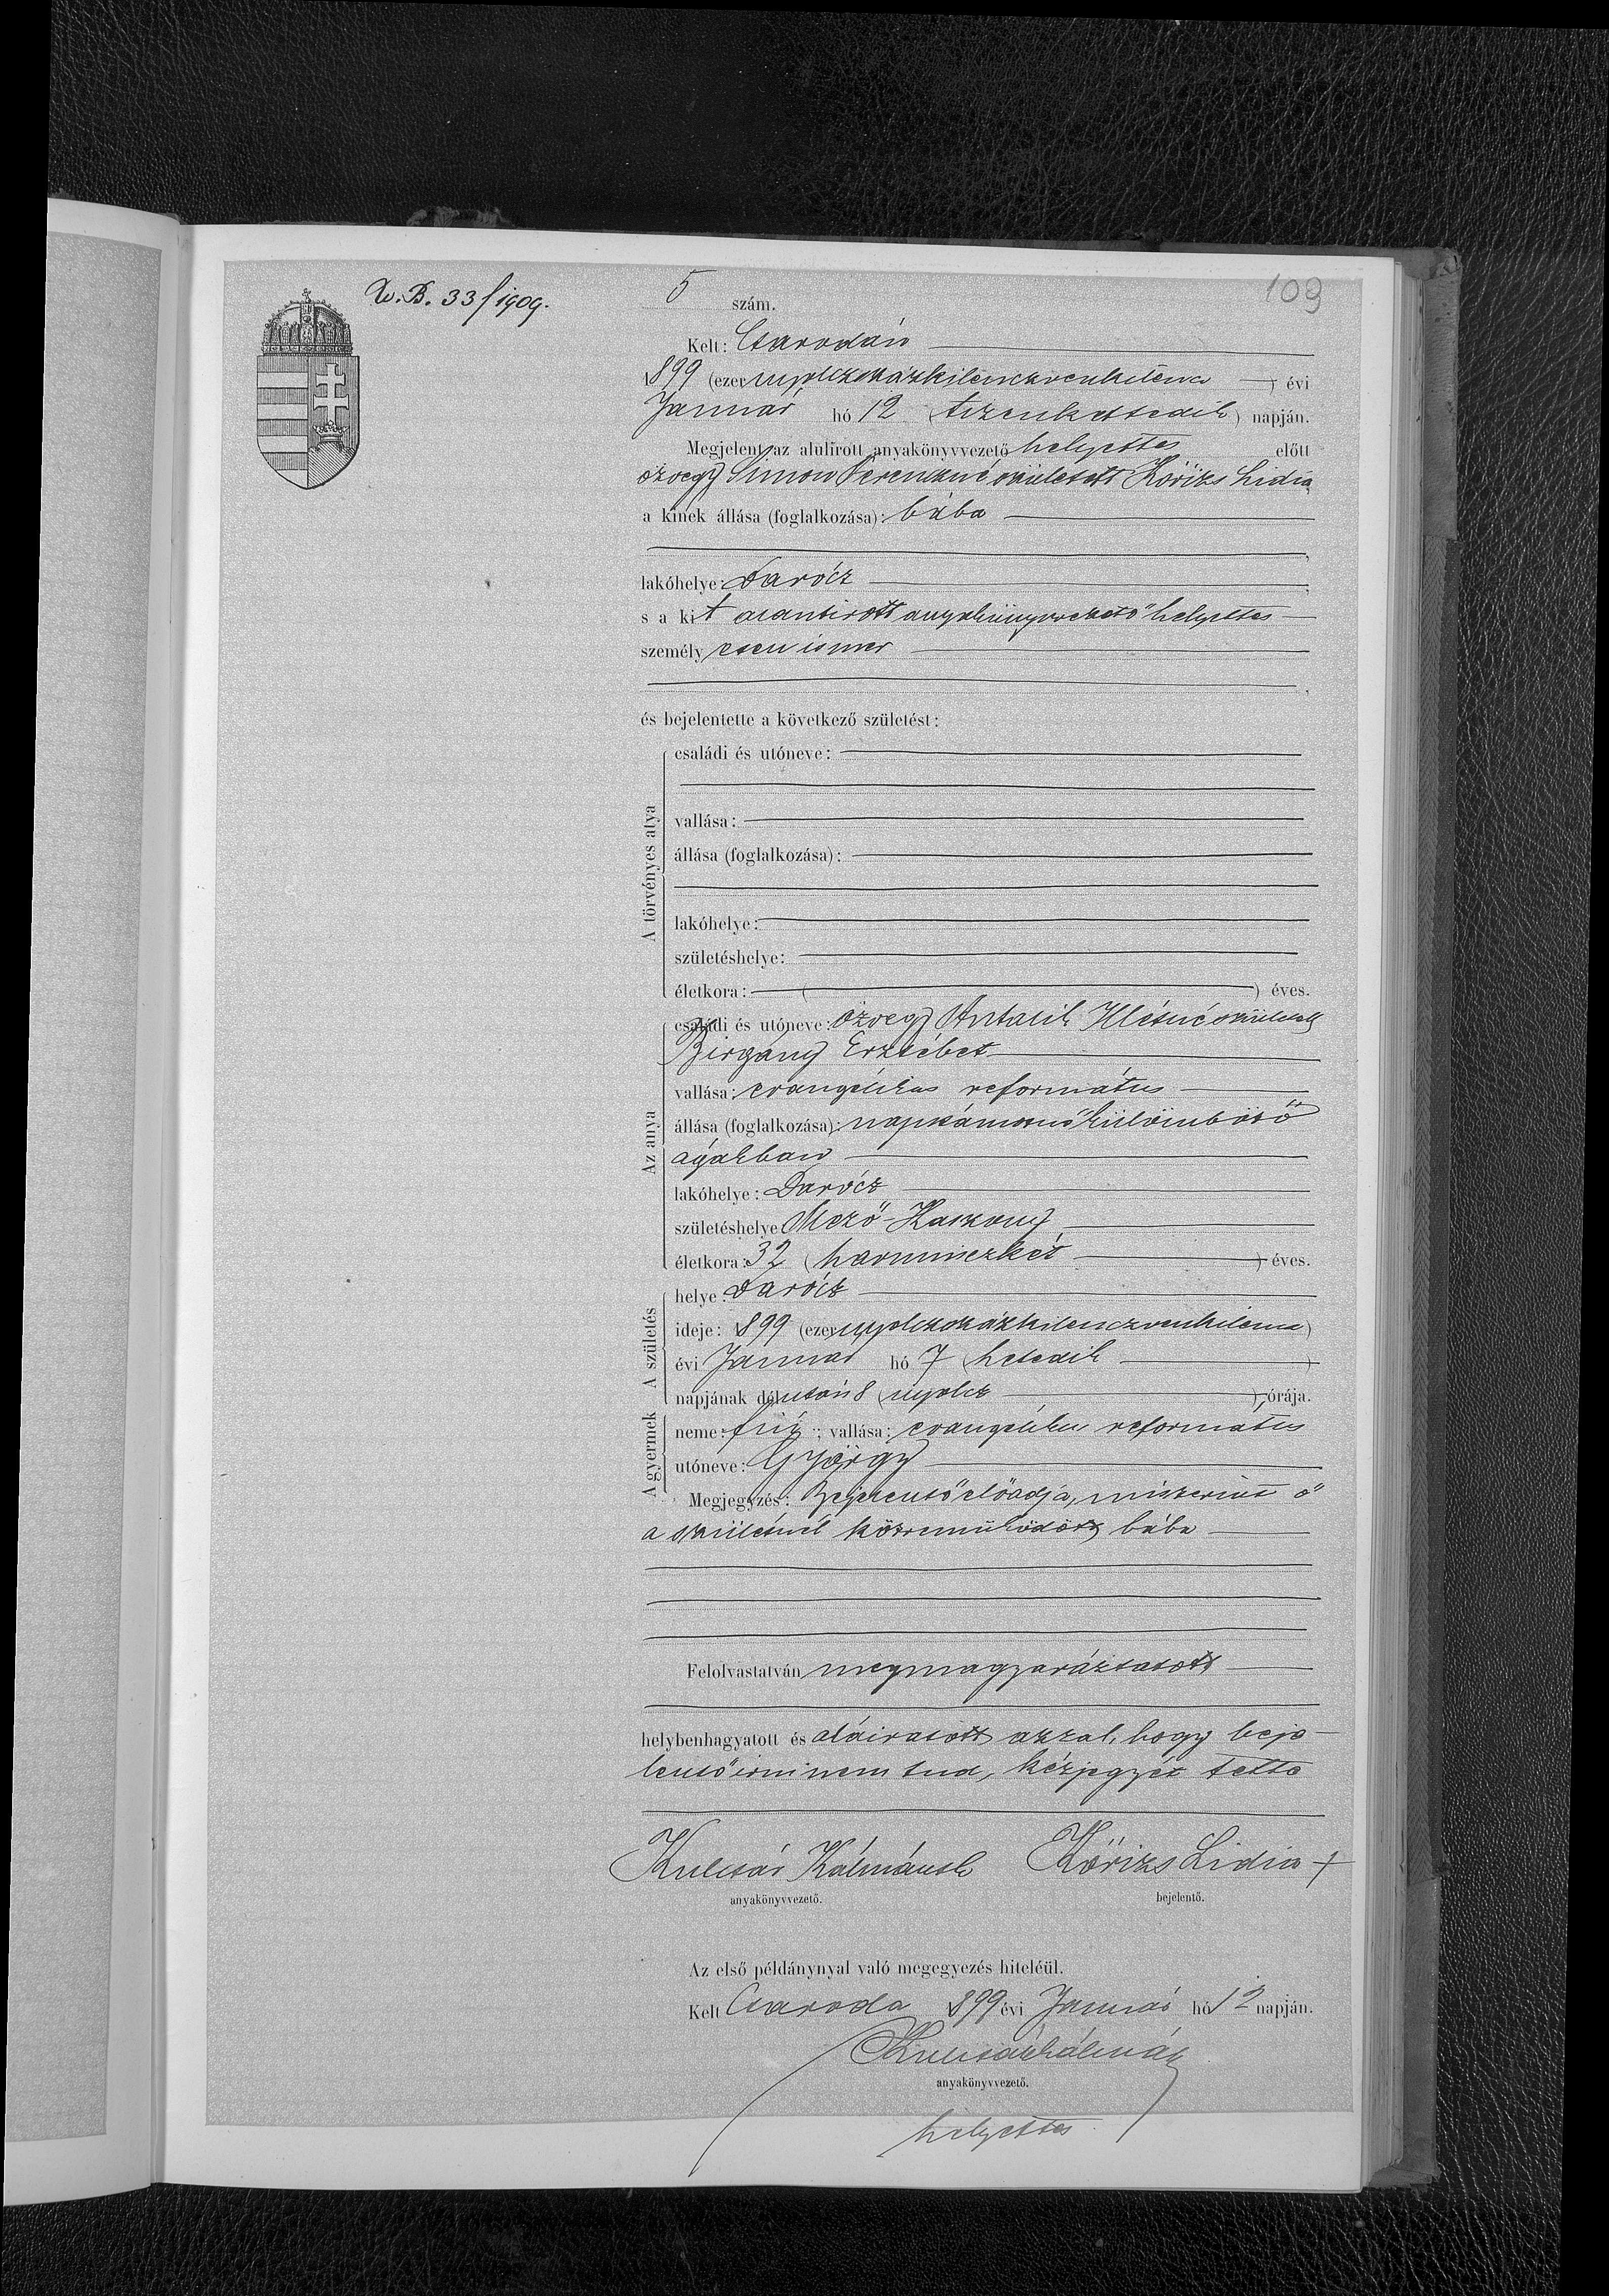 W. B. 33/1909.
5 szám.
109
Kelt: Csarodán
1899 (ezernyolczszázkilenczvenkilencz) évi
Január hó 12 (tizenkettedik) napján.
Megjelent az alulirott anyakönyvvezető helyettes előtt
özvegy Simon Ferenczné született Körizs Lidia,
a kinek állása (foglalkozása): bába
lakóhelye: Darócz
s a kit alantirott anyakönyvvezető helyettes
személyesen ismer
és bejelentette a következő születést:
A törvényes atya
családi és utóneve:
vallása:
állása (foglalkozása):
lakóhelye:
születéshelye:
életkora: ( ) éves.
Az anya
családi és utóneve: özvegy Antalik született
Birgány Erzsébet
vallása: evangélikus református
állása (foglalkozása): napszámosnő különböző
ágakban
lakóhelye: Darócz
születéshelye: Mező-Kaszony
életkora: 32 (harminczkét) éves.
A születés
helye: Darócz
ideje: 1899 (ezernyolczszázkilenczvenkilencz)
évi Január hó 7 (hetedik)
napjának délután 8 (nyolcz) órája.
A gyermek
neme: fiú; vallása: evangéliku református
utóneve: György
Megjegyzés: Bejelentő előadja, miszerint ő
a szülésnél közreműködött bába
Felolvastatván megmagyaráztatott
helybenhagyatott és aláiratott azzal, hogy beje-
lentő irni nem tud, kézjegyét tette
Kulcsár Kálmán h. Körizs Lidia +
anyakönyvvezető. bejelentő.
Az első példánynyal való megegyezés hiteléül.
Kelt Csaroda 1899 évi Január hó 12 napján.
Kulcsár Kálmán
anyakönyvvezető.
helyettes